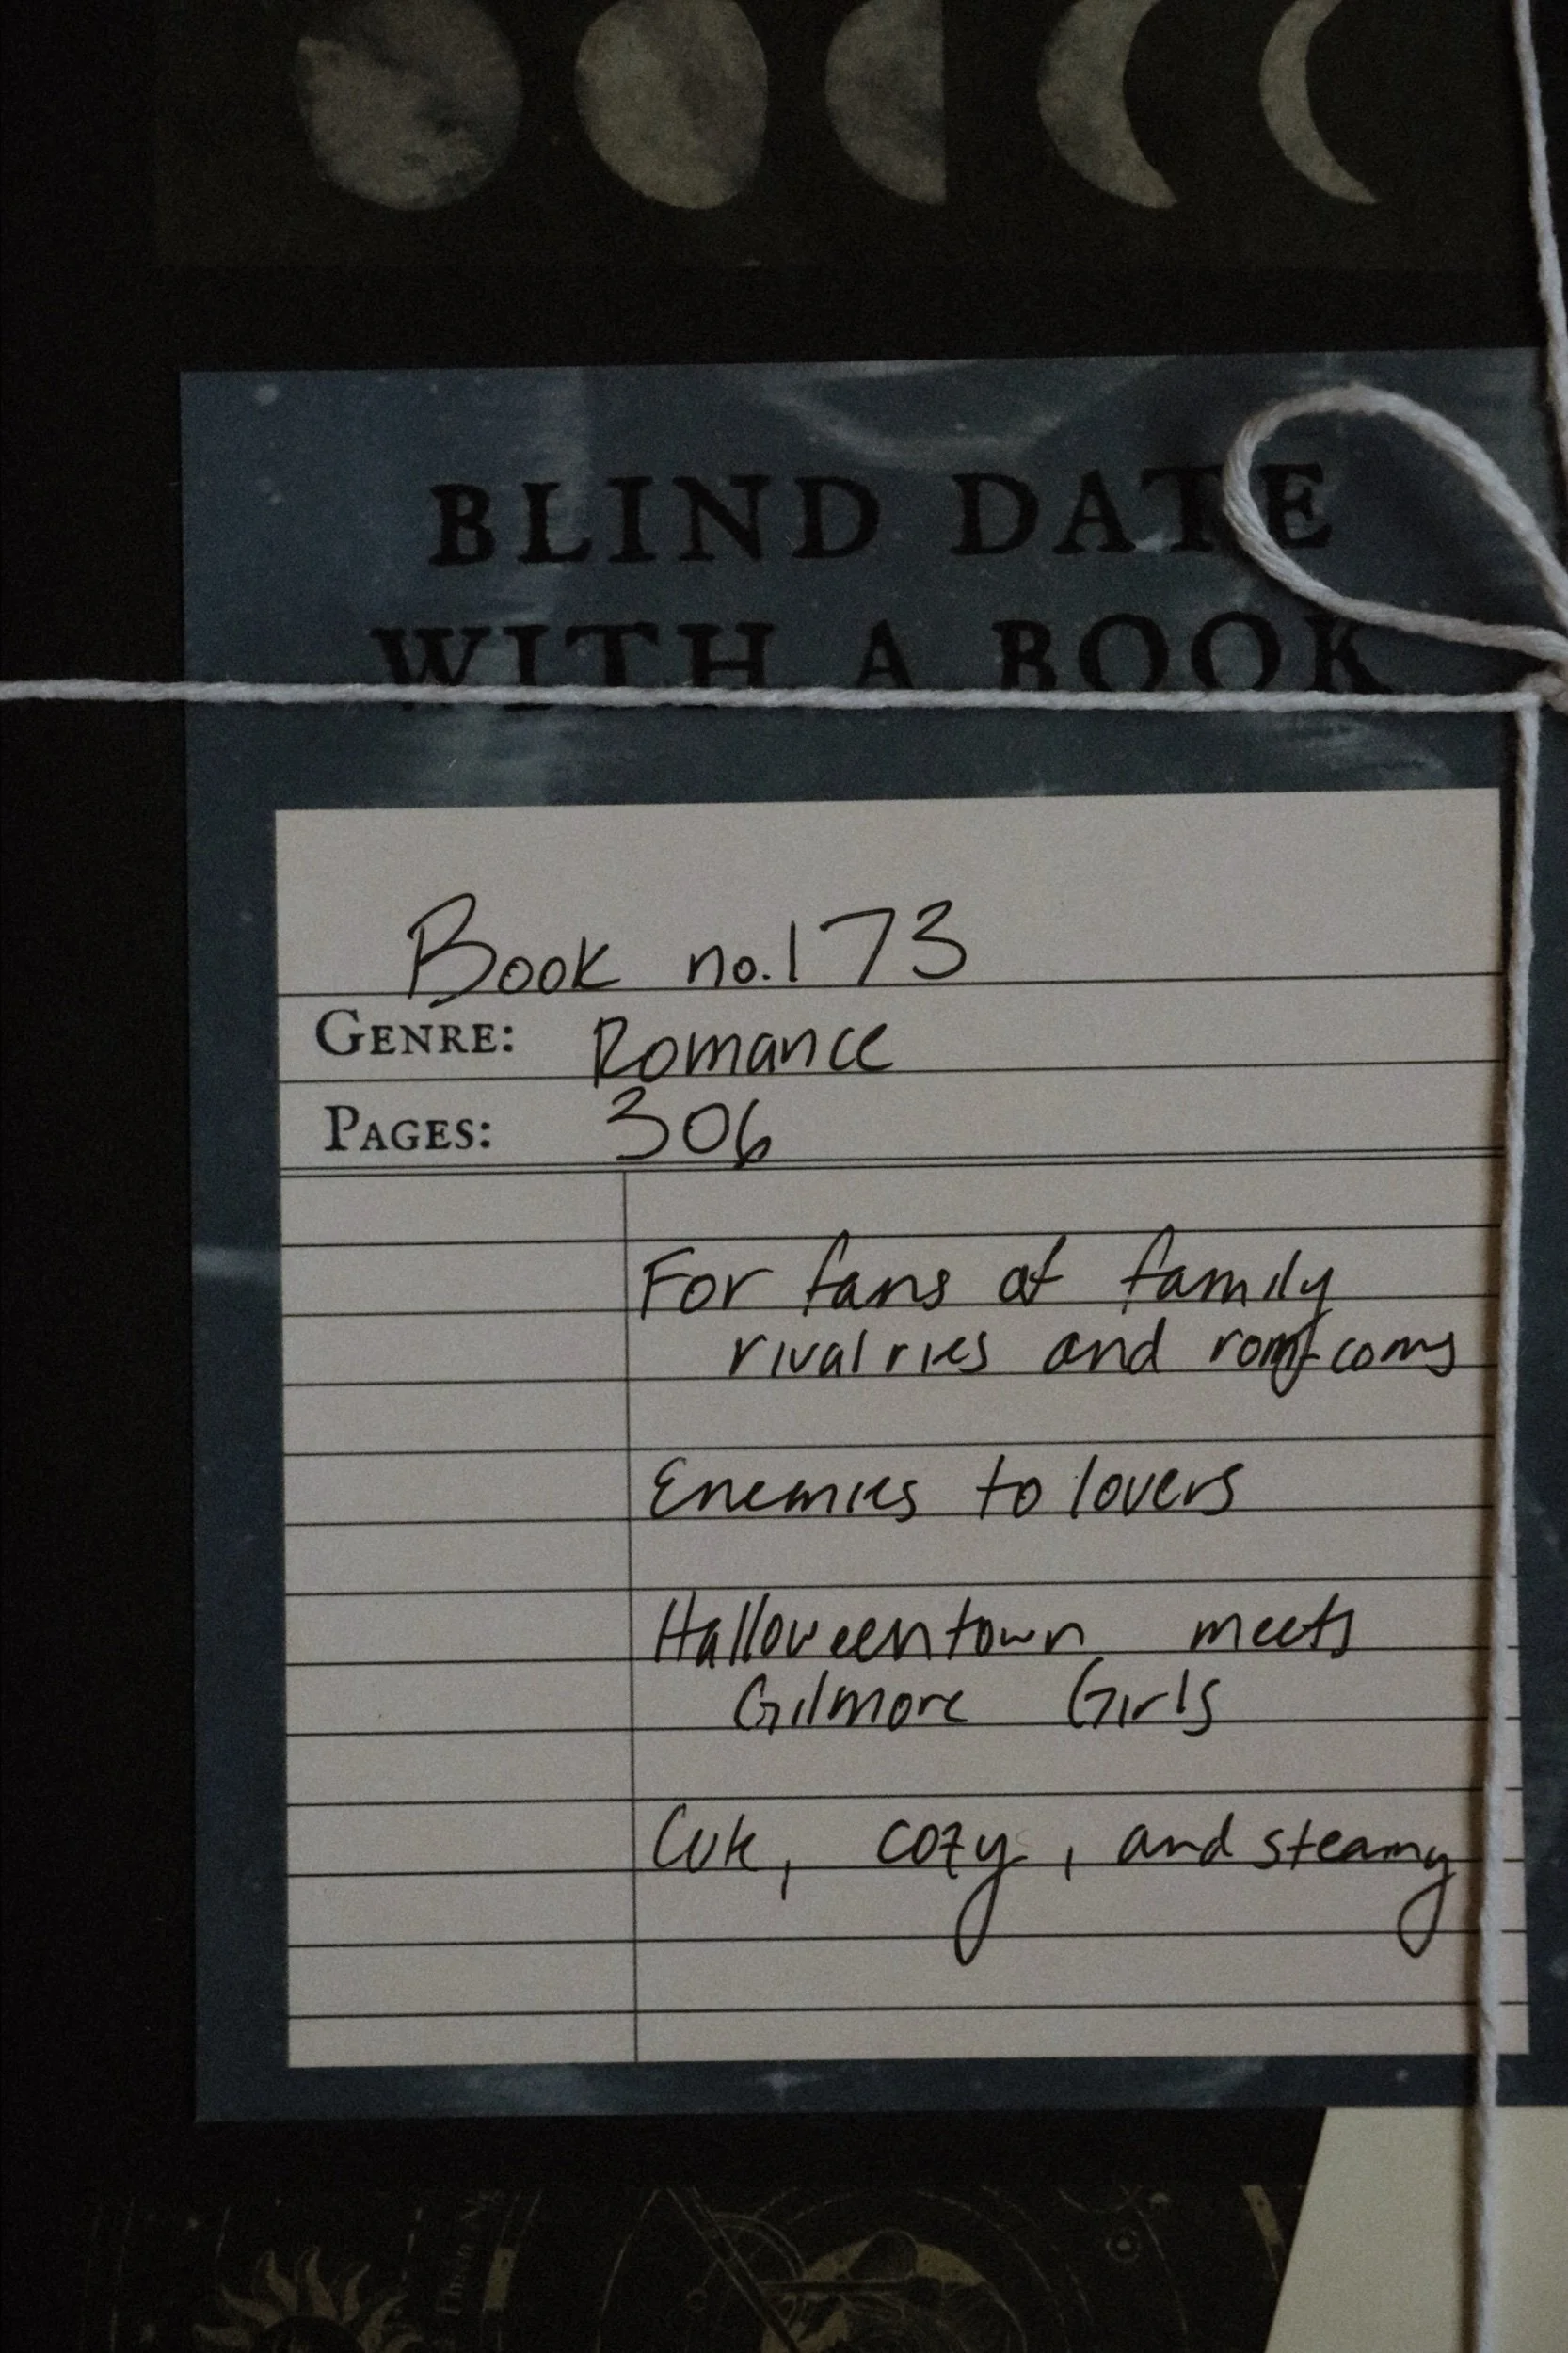 BLIND DATE
WITH A BOOK
Book no. 173
GENRE: Romance
PAGES: 306
For fans of family
rivalries and rom-coms
Enemies to lovers
Halloweentown meets
Gilmore Girls
Cute, cozy, and steamy